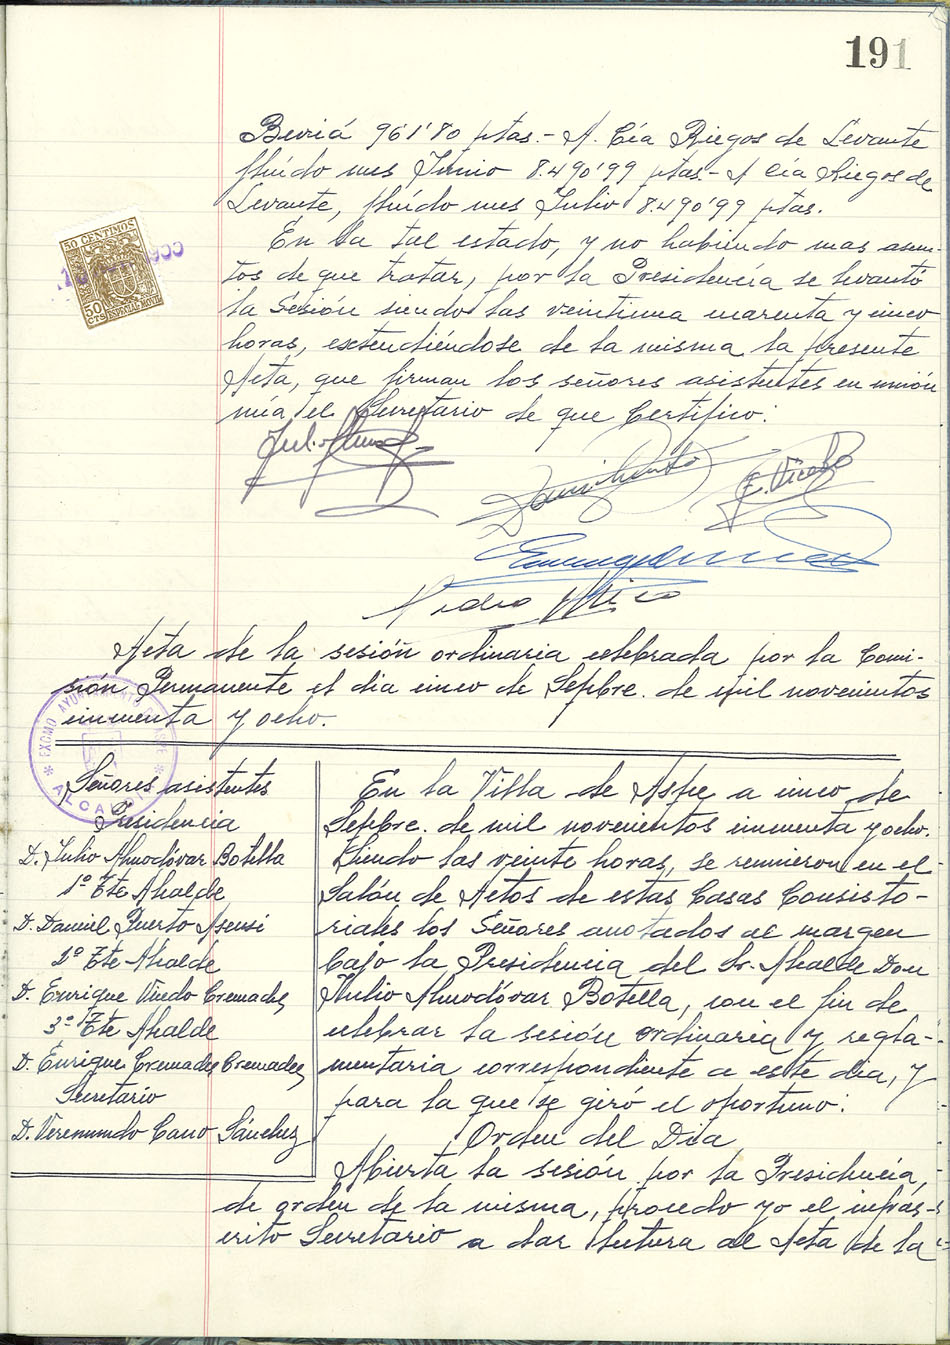 191
Beviá 961'80 ptas.- A Cía Riegos de Levante
fluído mes Junio 8.490'99 ptas.- A Cía Riegos de
Levante, fluído mes Julio 8.490'99 ptas.
En la tal estado, y no habiendo mas asun-
tos de que tratar, por la Presidencia se levantó
la Sesión siendo las veintiuna cuarenta y cinco
horas, extendiéndose de la misma la presente
Acta, que firman los señores asistentes en unión
mía, el Secretario de que Certifico:
50 CENTIMOS
50 CTS
ESPECIAL MOVIL
E. Vicedo
Pedro Mico
Acta de la sesión ordinaria celebrada por la Comi-
sión Permanente el dia cinco de Sepbre. de mil novecientos
cincuenta y ocho.
EXCMO AYUNTAMIENTO DE ASPE
ALCALDIA
Señores asistentes
Presidencia
D. Julio Almodóvar Botella
1º Tte Alcalde
D. Daniel Puerto Asensi
2º Tte Alcalde
D. Enrique Vicedo Cremades
3º Tte Alcalde
D. Enrique Cremades Cremades
Secretario
D. Veremundo Cano Sánchez
En la Villa de Aspe a cinco de
Sepbre. de mil novecientos cincuenta y ocho.
Siendo las veinte horas, se reunieron en el
Salón de Actos de estas Casas Consisto-
riales los Señores anotados al margen
bajo la Presidencia del Sr. Alcalde Don
Julio Almodóvar Botella, con el fin de
celebrar la sesión ordinaria y regla-
mentaria correspondiente a este dia, y
para la que se giró el oportuno:
Orden del Dia
Abierta la sesión por la Presidencia,
de orden de la misma, procedo yo el infras-
crito Secretario a dar lectura al Acta de la